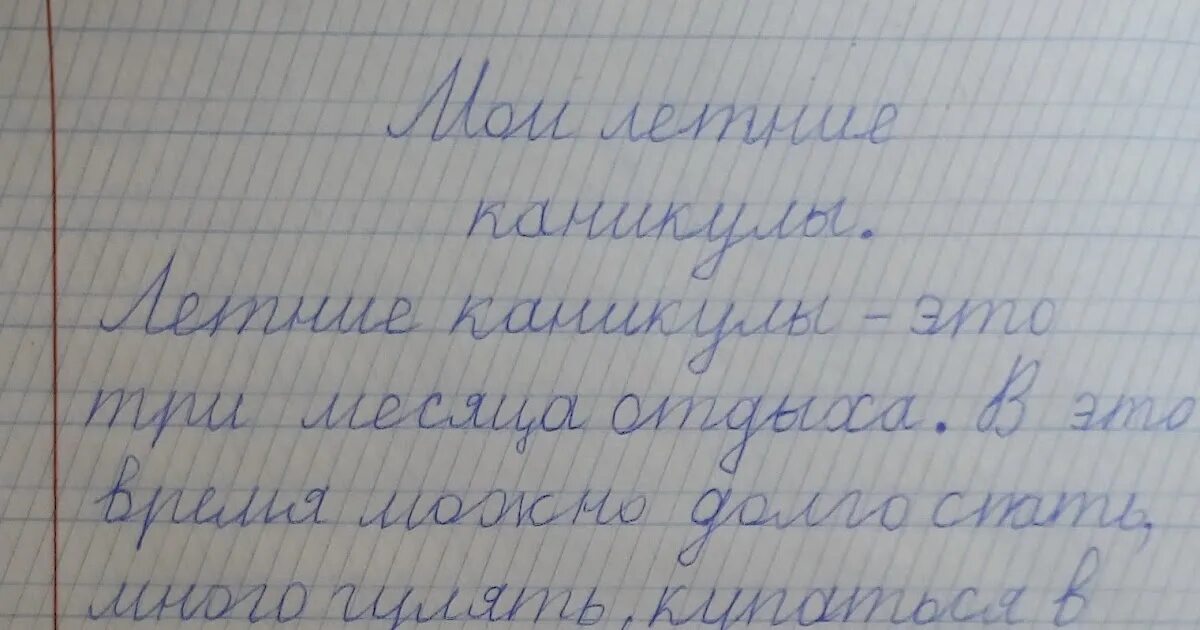 Мои летние
каникулы.
Летние каникулы - это
три месяца отдыха. В это
время можно долго спать,
много гулять, купаться в